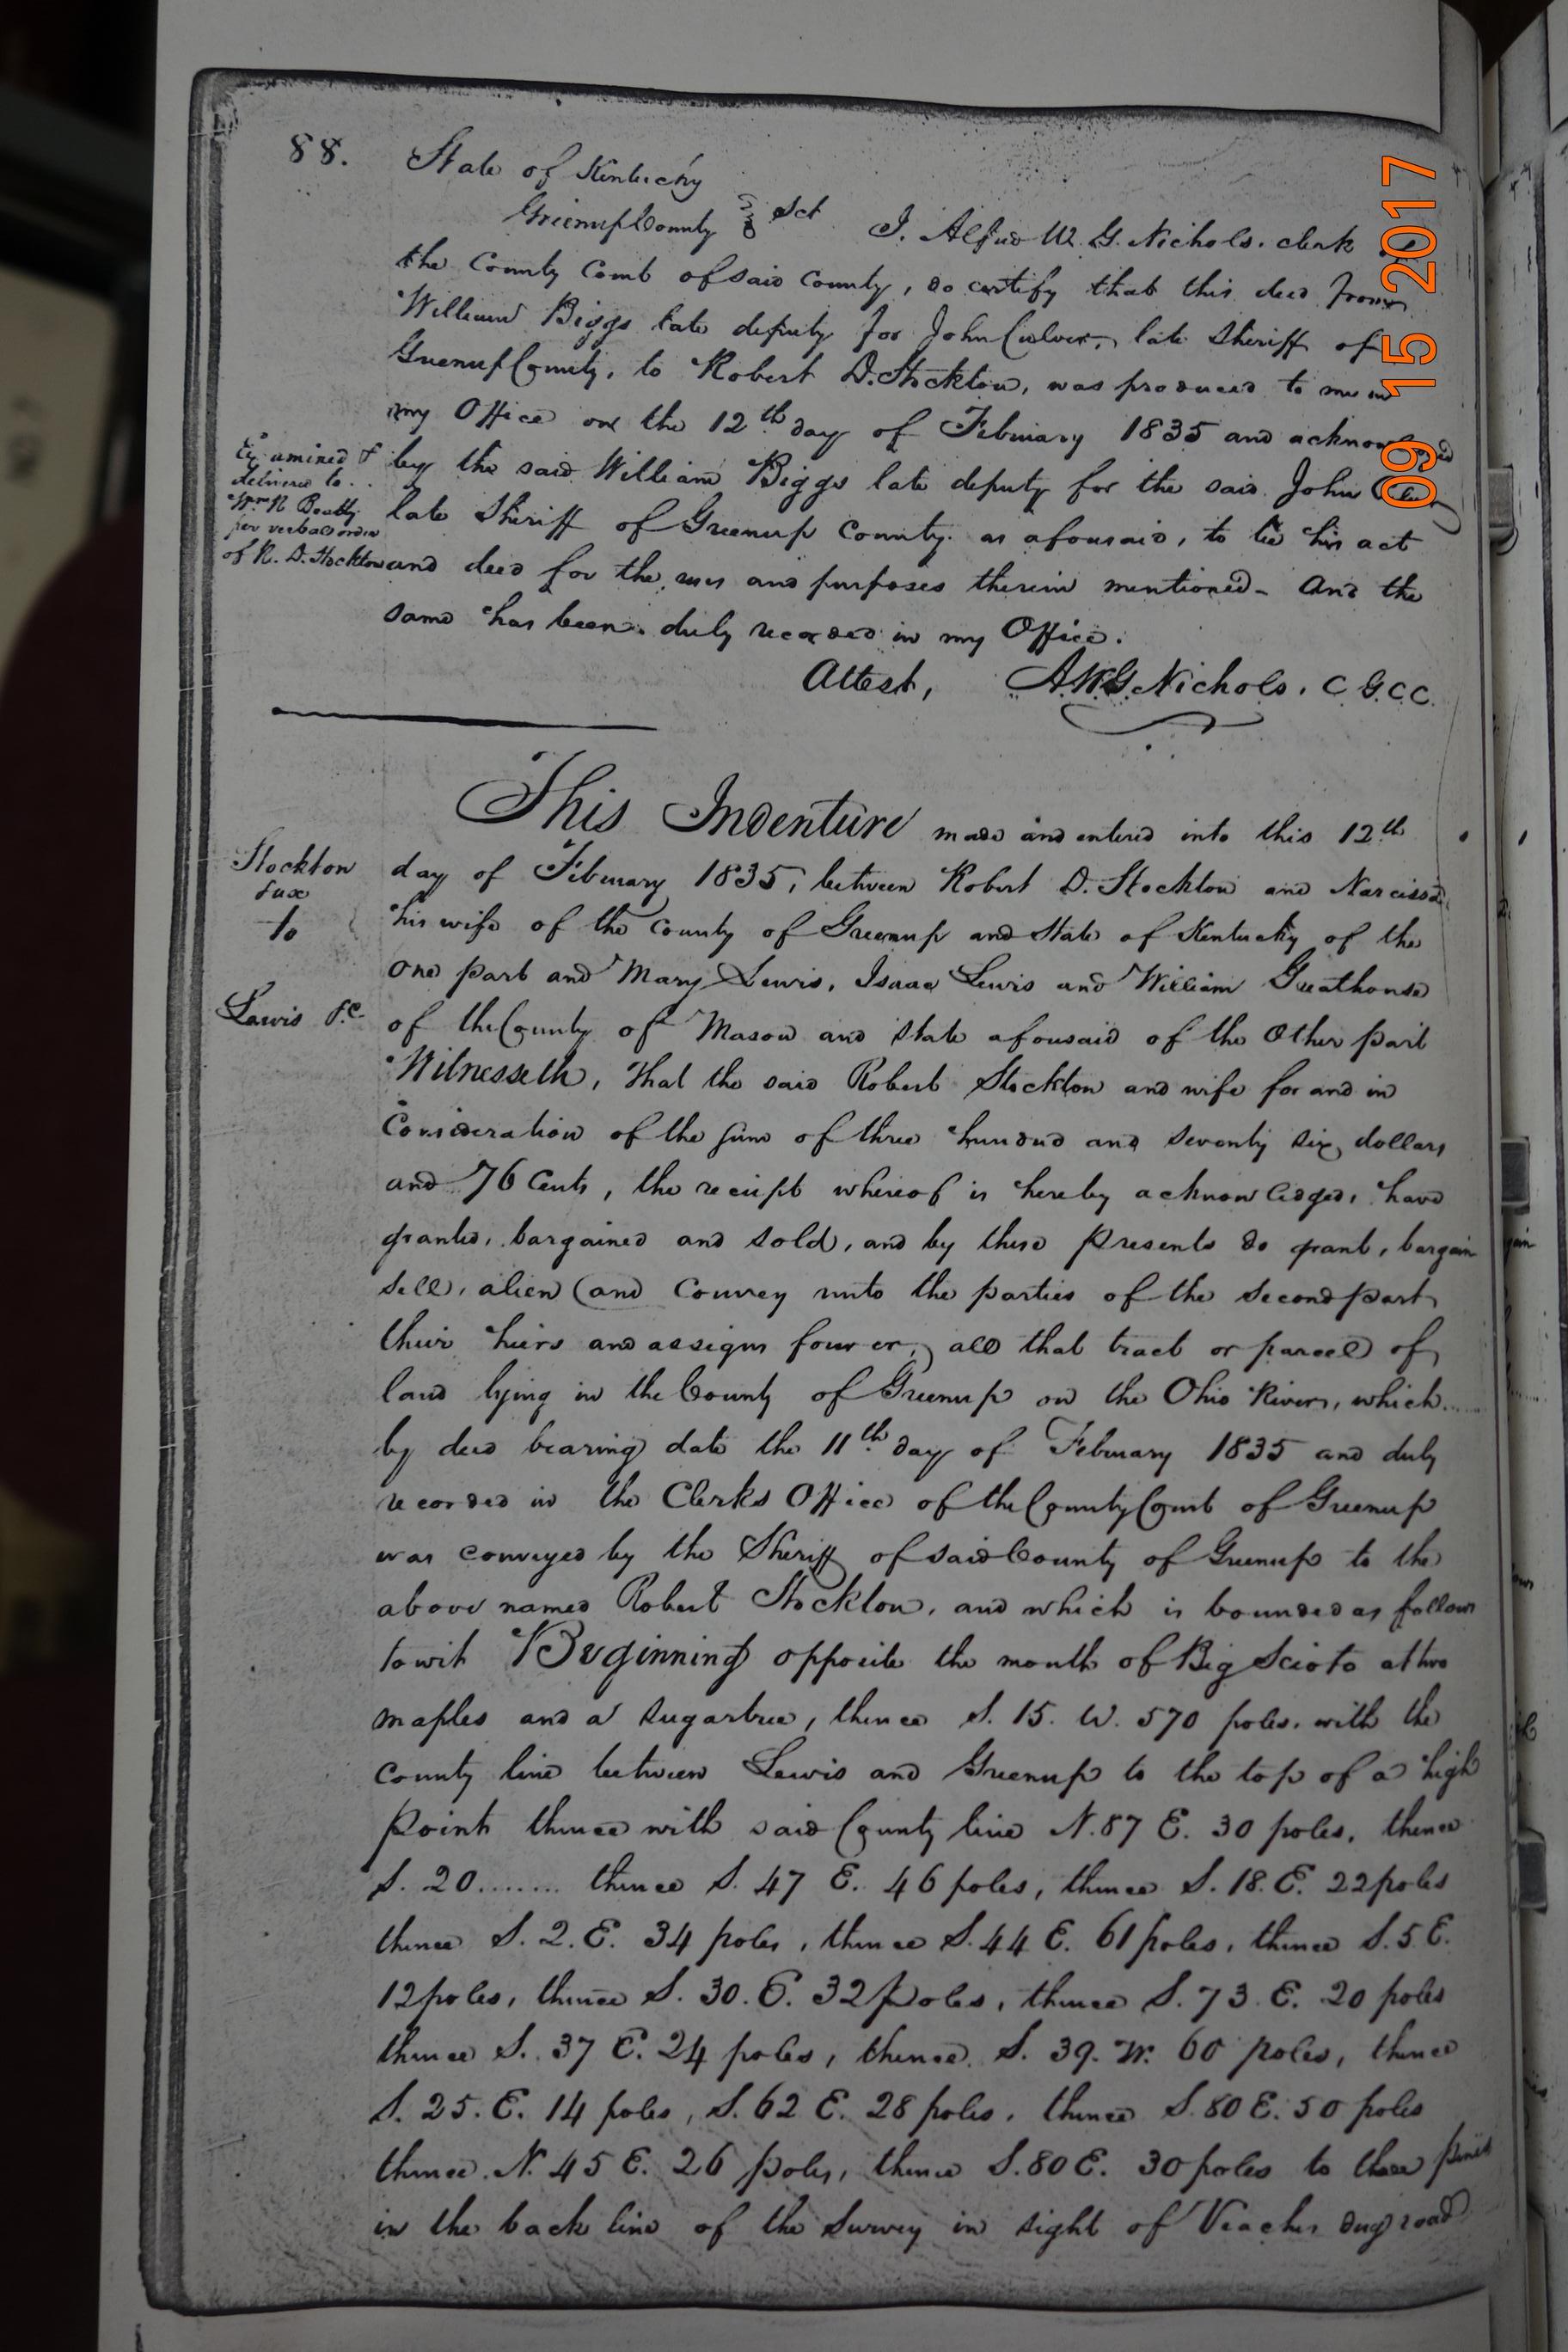 88.
State of Kentucky
Greenup County Sct I. Alfred W. G. Nichols. clerk
the County Court of said County, do certify that this deed from
William Biggs late deputy for John Culver, late Sheriff of
Greenup County, to Robert D. Stockton, was produced to me in
my Office on the 12th day of February 1835 and acknowledged
by the said William Biggs late deputy for the said John
late Sheriff of Greenup County as aforesaid, to be his act
and deed for the uses and purposes therein mentioned - And the
same has been duly recorded in my Office.
Attest, A.W.G. Nichols. C G.C.C.
Examined &
delivered to..
Wm R Beatty
per verbal order
of R. D. Stockton
This Indenture made and entered into this 12th
day of February 1835, between Robert D. Stockton and Narcissa
his wife of the County of Greenup and State of Kentucky of the
one part and Mary Lewis, Isaac Lewis and William Greathouse
of the County of Mason and State aforesaid of the Other part
Witnesseth, That the said Robert Stockton and wife for and in
Consideration of the sum of three hundred and seventy six dollars
and 76 Cents, the receipt whereof is hereby acknowledged, have
granted, bargained and sold, and by these presents do grant, bargain
sell, alien and Convey unto the parties of the second part
their heirs and assigns forever, all that tract or parcel of
land lying in the County of Greenup on the Ohio River, which....
by deed bearing date the 11th day of February 1835 and duly
recorded in the Clerks Office of the County Court of Greenup
was conveyed by the Sheriff of said County of Greenup to the
above named Robert Stockton, and which is bounded as follows
towit Beginning opposite the mouth of Big Scioto at two
maples and a sugartree, thence S. 15. W. 570 poles. with the
County line between Lewis and Greenup to the top of a high
Point thence with said County line N. 87 E. 30 poles, thence
S. 20........ thence S. 47 E. 46 poles, thence S. 18. E. 22 poles
thence S. 2. E. 34 poles, thence S. 44 E. 61 poles, thence S. 5 E.
12 poles, thence S. 30. E. 32 poles, thence S. 73 E. 20 poles
thence S. 37 E. 24 poles, thence S. 39. W. 60 poles, thence
S. 25. E. 14 poles, S. 62 E. 28 poles, thence S. 80 E. 50 poles
thence N. 45 E. 26 poles, thence S. 80 E. 30 poles to three pines
in the back line of the Survey in sight of Veaches dug road
Stockton
&ux
to
Lewis &c
09 15 2017